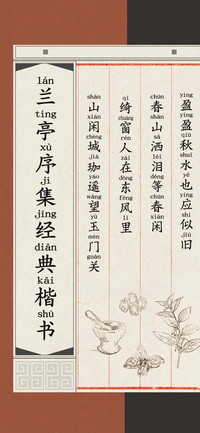 yíng yíng qiū shuǐ yě yìng sì jiù
盈盈秋水也应似旧
chūn shān sǎ lèi děng chūn xián
春山洒泪等春闲
qǐ chuāng rén zài dōng fēng lǐ
绮窗人在东风里
shān xián chéng jiā yáo wàng yù mén guān
山闲城珈遥望玉门关
lán tíng xù jí jīng diǎn kǎi shū
兰亭序集经典楷书